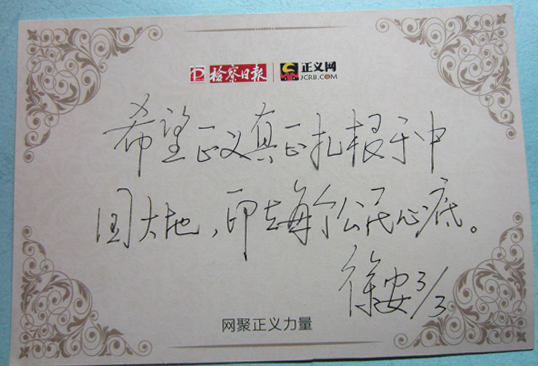 检察日报 正义网
JCRB.COM
希望正义真正扎根于中
国大地，印在每个公民心底。
徐安 3/3
网聚正义力量